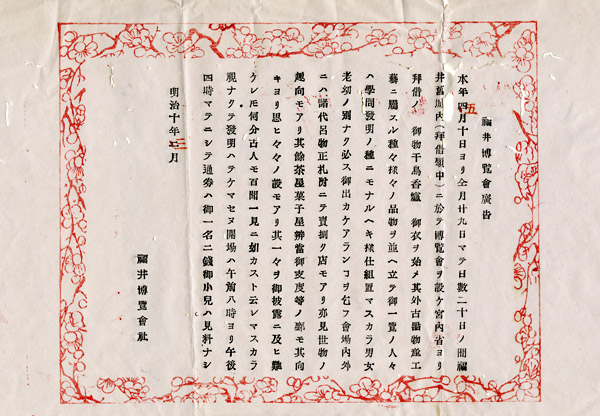 福井博覽會廣告
本年五月十日ヨリ仝月廿九日マテ日數二十日ノ間福
井舊城内(拜借願中)ニ於テ博覽會ヲ設ケ宮内省ヨリ
拜借ノ 御物千鳥香爐 御衣ヲ始メ其外古器物並工
藝ニ屬スル種々樣々ノ品物ヲ並ヘ立テ御一覽ノ人々
ハ學問發明ノ種ニモナルヘキ樣仕組置マスカラ男女
老幼ノ別ナク必ス御出カケアランコヲ乞フ會場内外
ニハ諸代呂物正札附ニテ賣捌ク店モアリ亦見世物ノ
趣向モアリ其餘茶屋菓子屋辨當御支度等ノ鄽モ其向
キヨリ思ヒ々々ノ設モアリ其一々ヲ御披露ニ及ヒ難
ケレ𪜈何分古人モ百聞一見ニ如カスト云レマスカラ
觀ナクテ發明ハテケマセヌ開場ハ午前八時ヨリ午後
四時マテニシテ通券ハ御一名二錢御小兒ハ見料ナシ
明治十年三月
福井博覽會社